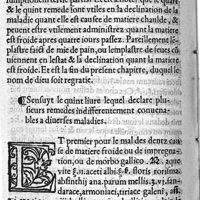 & le quint remede sont vtiles en la declination de la
maladie quant elle est cause de matiere chaulde, &
peuent estre vtilement administrez quant la matiere
est froide apres quatre iours passez. Pareillement lẽ-
plastre faict de mie de pain, ou lemplastre de feues cõ-
uiennent en lestat & la declination quant la matiere
est froide. Et est la fin du present chapitre, duquel le
nom de dieu soit regratie.
Sensuyt le quint liure lequel declare plu-
sieurs remedes indifferentement conuena-
bles a diuerses maladies.
ET premier pour le mal des dentz cau-
se de matiere froide ou de impregna-
tion, ou de morbo gallico. aque
vite ℥.ii. aceti albi ℥.ß. floris rorismar.
absinthij ana. parum mellis. ℥.vi. san-
darace, armoniaci, tiriace galeni, ass.